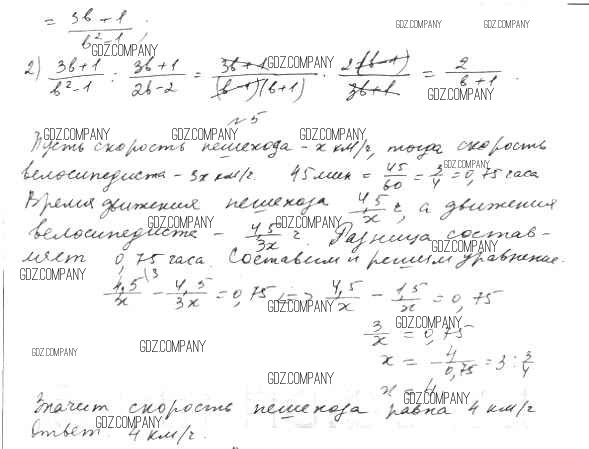 = (3b+1)/(b²-1);
GDZ.COMPANY GDZ.COMPANY
GDZ.COMPANY
2) (3b+1)/(b²-1) : (3b+1)/(2b-2) = (3b+1)/((b-1)(b+1)) · 2(b-1)/(3b+1) = 2/(b+1).
GDZ.COMPANY
GDZ.COMPANY
№5
GDZ.COMPANY GDZ.COMPANY GDZ.COMPANY
Пусть скорость пешехода - х км/ч, тогда скорость
GDZ.COMPANY
велосипедиста - 3х км/ч. 45 мин = 45/60 = 3/4 = 0,75 часа
Время движения пешехода 4,5/x ч, а движения
GDZ.COMPANY GDZ.COMPANY
велосипедиста - 4,5/3x ч. Разница состав-
GDZ.COMPANY
ляет 0,75 часа. Составим и решим уравнение.
GDZ.COMPANY
4,5/x \3 - 4,5/3x = 0,75; => 4,5/x - 1,5/x = 0,75
GDZ.COMPANY
GDZ.COMPANY
3/x = 0,75
GDZ.COMPANY GDZ.COMPANY
x = 4/0,75 = 3 : 3/4
GDZ.COMPANY
x = 4
GDZ.COMPANY
Значит скорость пешехода равна 4 км/ч
GDZ.COMPANY
Ответ 4 км/ч.